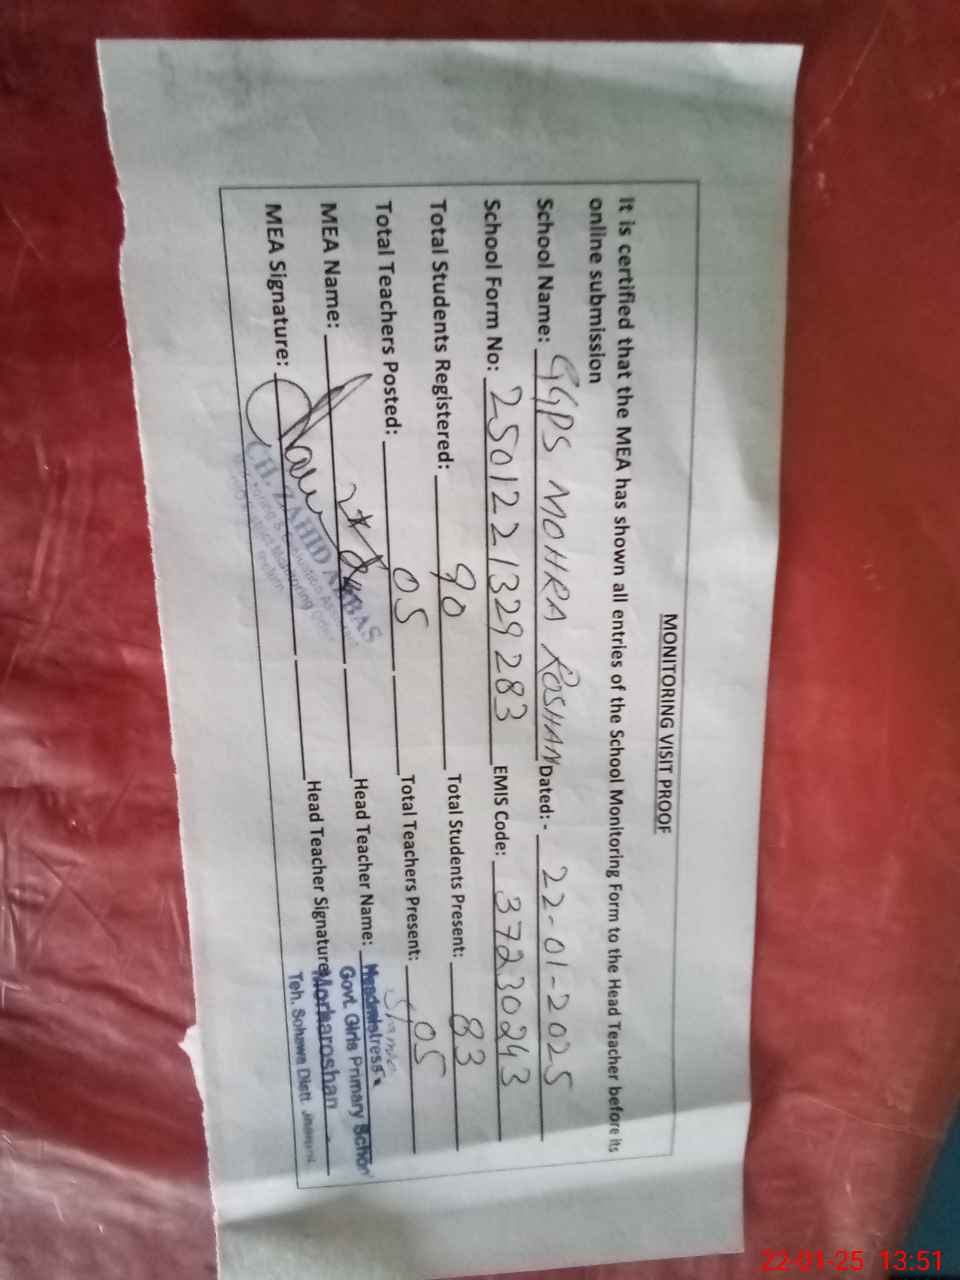 MONITORING VISIT PROOF
It is certified that the MEA has shown all entries of the School Monitoring Form to the Head Teacher before its
online submission
School Name: GGPS MOHRA ROSHAN Dated:- 22-01-2025
School Form No: 2501221329283 EMIS Code: 37230243
Total Students Registered: 90 Total Students Present: 83
Total Teachers Posted: 05 Total Teachers Present: 05
MEA Name: Head Teacher Name:
MEA Signature: Head Teacher Signature
CH. ZAHID ABBAS
Headmistress
Govt. Girls Primary School
Morharoshan
Teh. Sohawa Distt. Jhelum
22-01-25 13:51